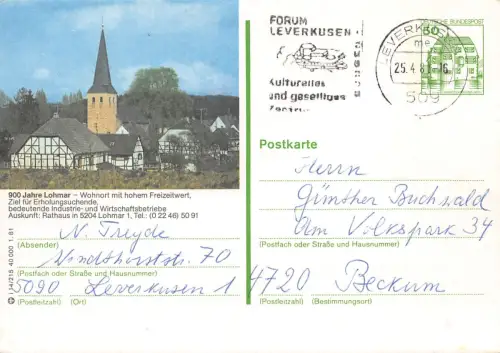 FORUM
LEVERKUSEN
Kulturelles
und geselliges
Zentrum
BUERGER
LEVERKUS
me
25.4.81-16
509
DEUTSCHE BUNDESPOST
50
Postkarte
900 Jahre Lohmar – Wohnort mit hohem Freizeitwert,
Ziel für Erholungsuchende,
bedeutende Industrie- und Wirtschaftsbetriebe
Auskunft: Rathaus in 5204 Lohmar 1, Tel.: (0 22 46) 50 91
N. Treyde
(Absender)
Windthorststr. 70
(Postfach oder Straße und Hausnummer)
5090 Leverkusen 1
(Postleitzahl) (Ort)
I 14/215 40.000 1.81
Herrn
Günther Buchwald
Am Volkspark 34
(Postfach oder Straße und Hausnummer)
4720 Beckum
(Postleitzahl) (Bestimmungsort)